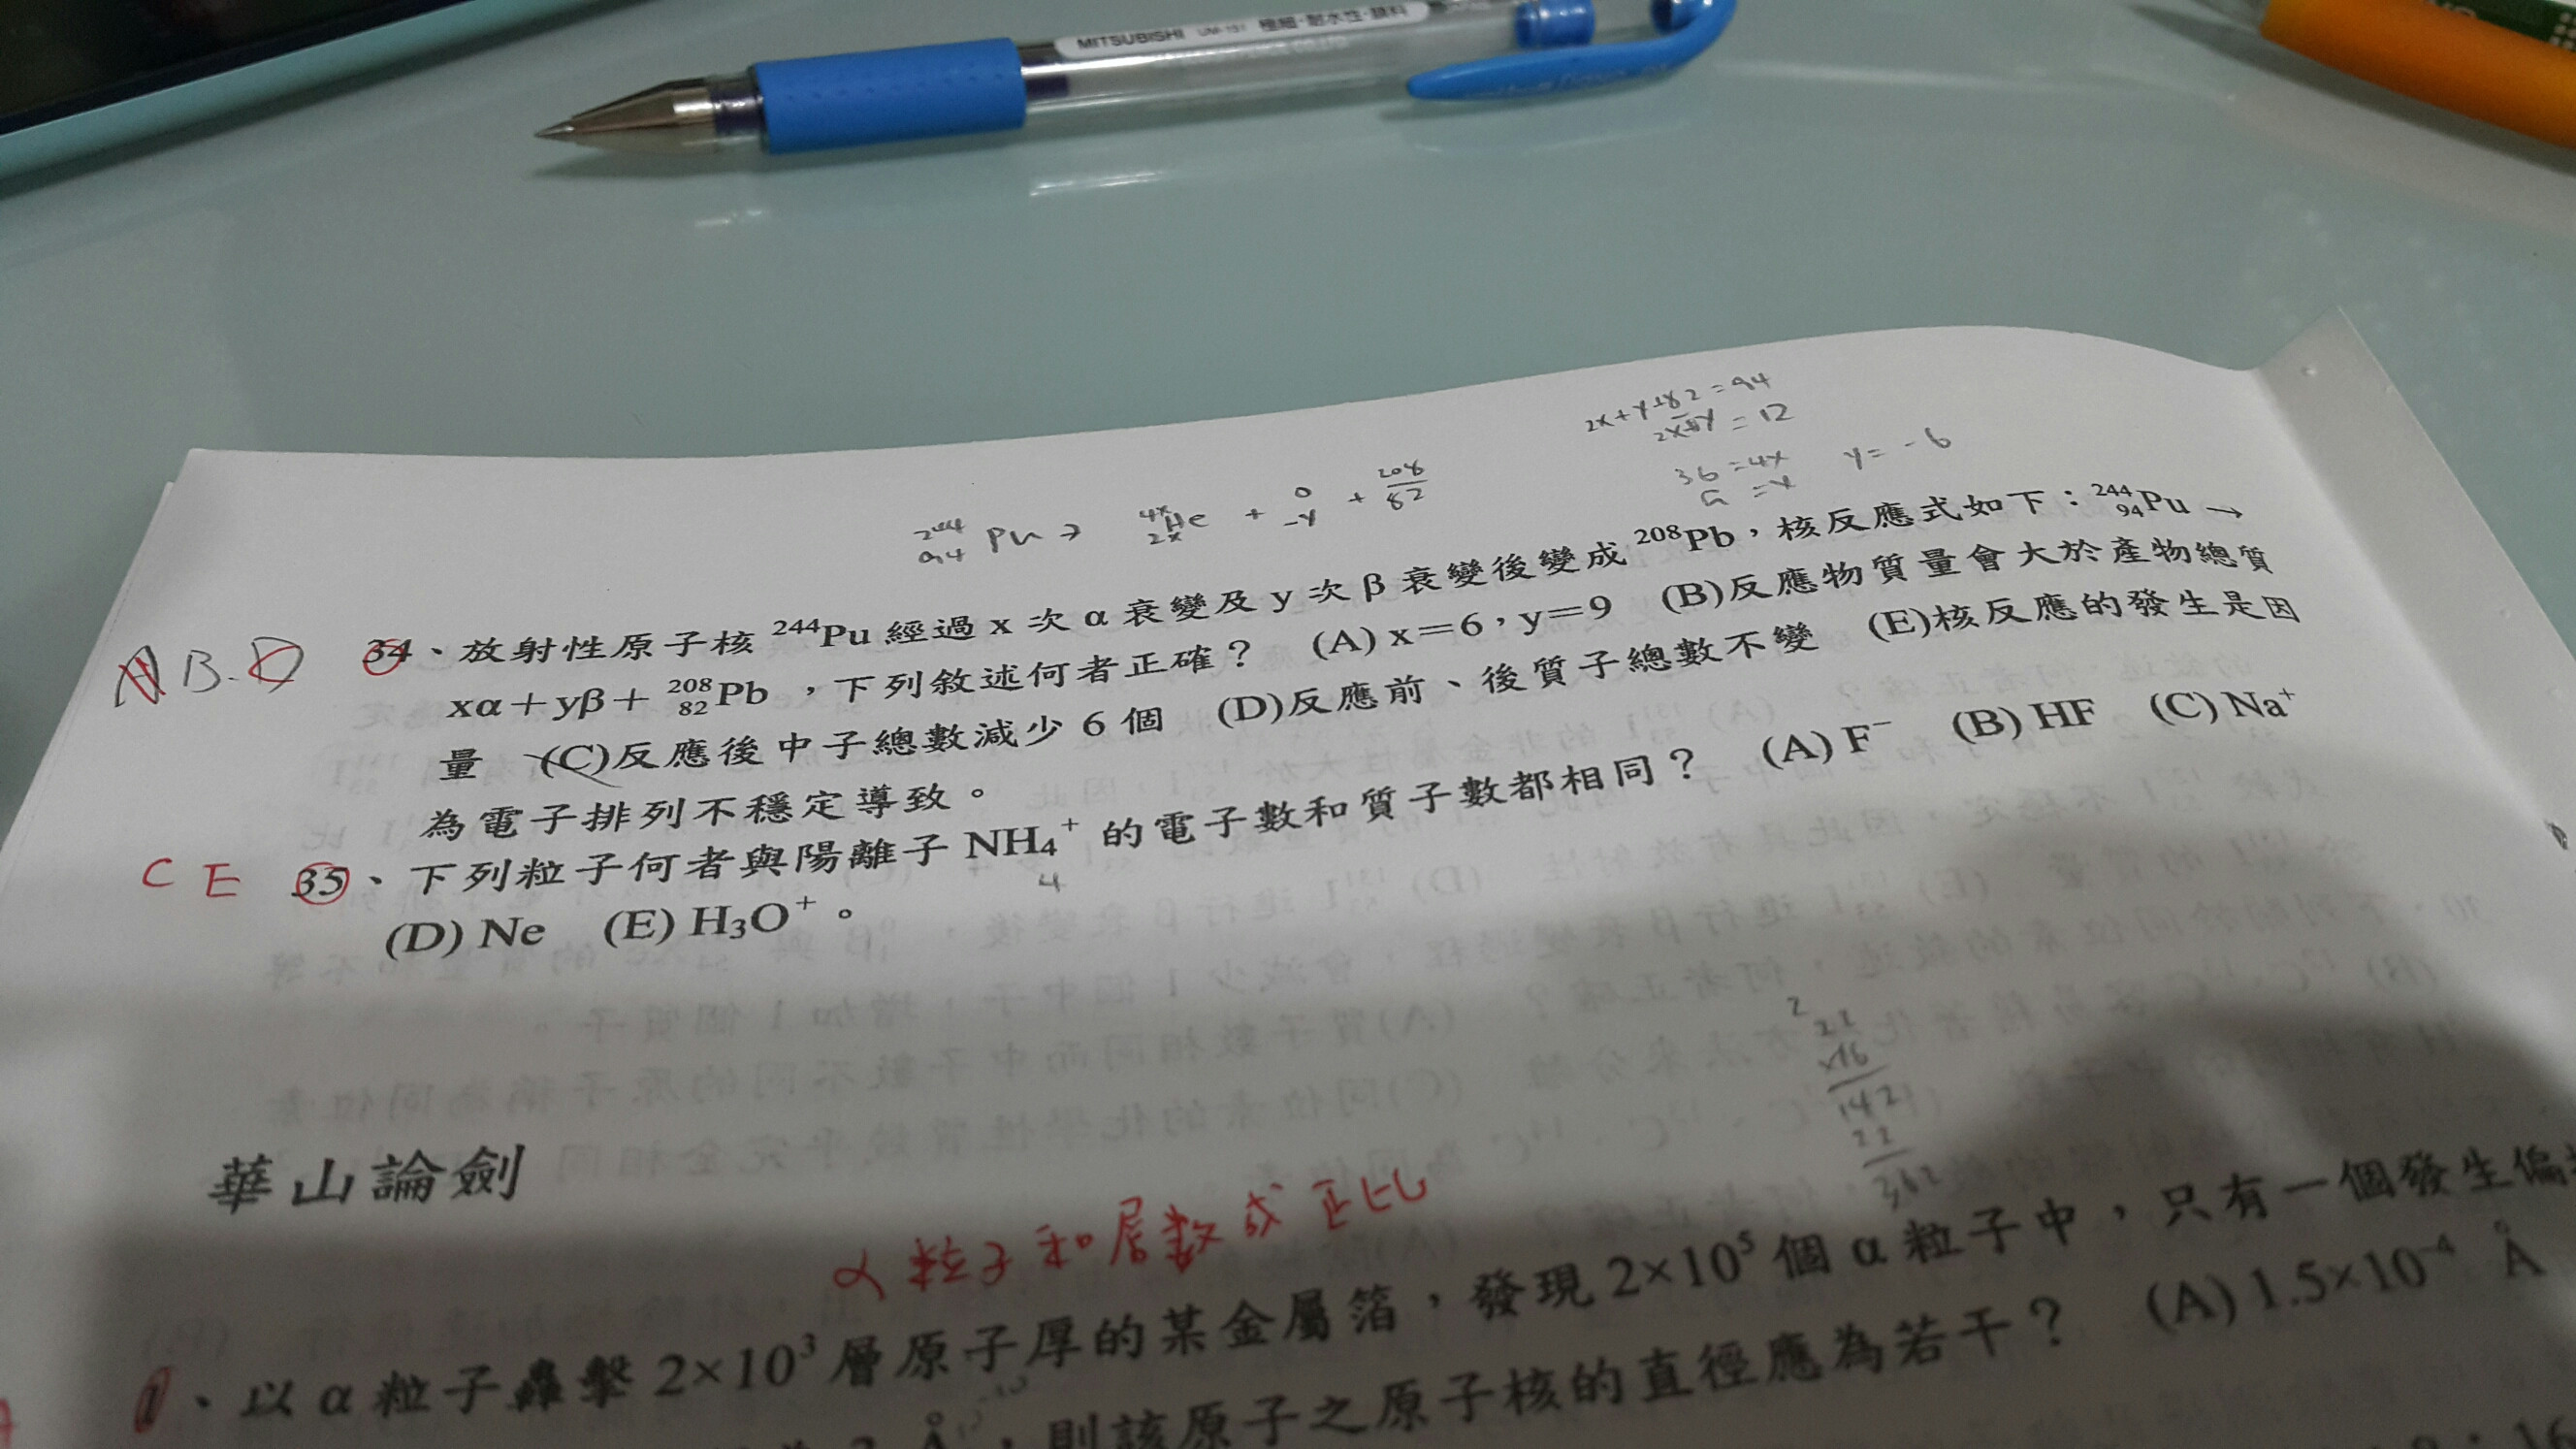 MITSUBISHI UM-151 極細·耐水性·顔料
2x+y+82=94
2x-y=12
36=4x y=-6
9=x
244 94 Pu → 4x 2x He + 0 -y + 208 82
A B. D 34、放射性原子核 ²⁴⁴Pu 經過 x 次 α 衰變及 y 次 β 衰變後變成 ²⁰⁸Pb，核反應式如下：²⁴⁴₉₄Pu →
xα＋yβ＋ ²⁰⁸₈₂Pb ，下列敘述何者正確？ (A) x＝6，y＝9 (B)反應物質量會大於產物總質
量 (C)反應後中子總數減少 6 個 (D)反應前、後質子總數不變 (E)核反應的發生是因
為電子排列不穩定導致。
C E 35、下列粒子何者與陽離子 NH₄⁺ 的電子數和質子數都相同？ (A) F⁻ (B) HF (C) Na⁺
4
(D) Ne (E) H₃O⁺。
2
22
×16
142
22
362
華山論劍
α 粒子和層數成正比
1、以 α 粒子轟擊 2×10³ 層原子厚的某金屬箔，發現 2×10⁵ 個 α 粒子中，只有一個發生偏
Å，則該原子之原子核的直徑應為若干？ (A) 1.5×10⁻⁴ Å